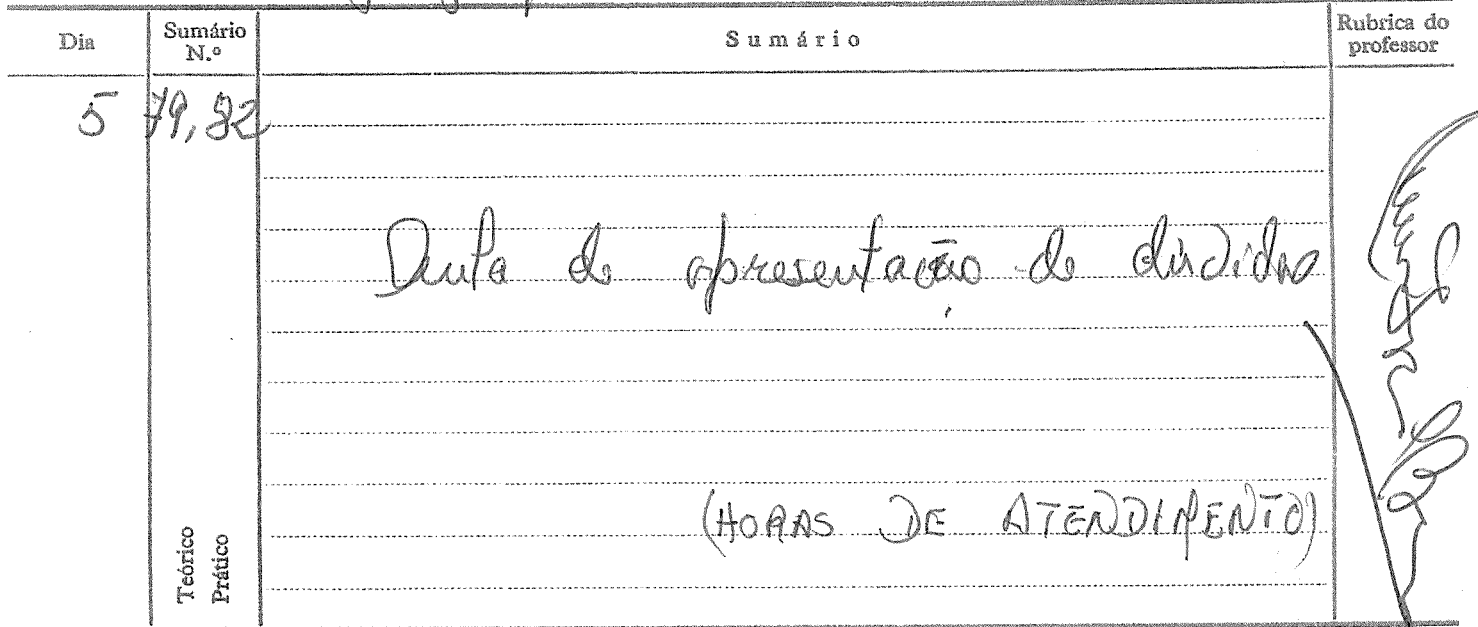 Dia Sumário N.º Sumário Rubrica do professor
5 79, 82
de apresentação de dúvidas
(HORAS DE ATENDIMENTO)
Teórico
Prático